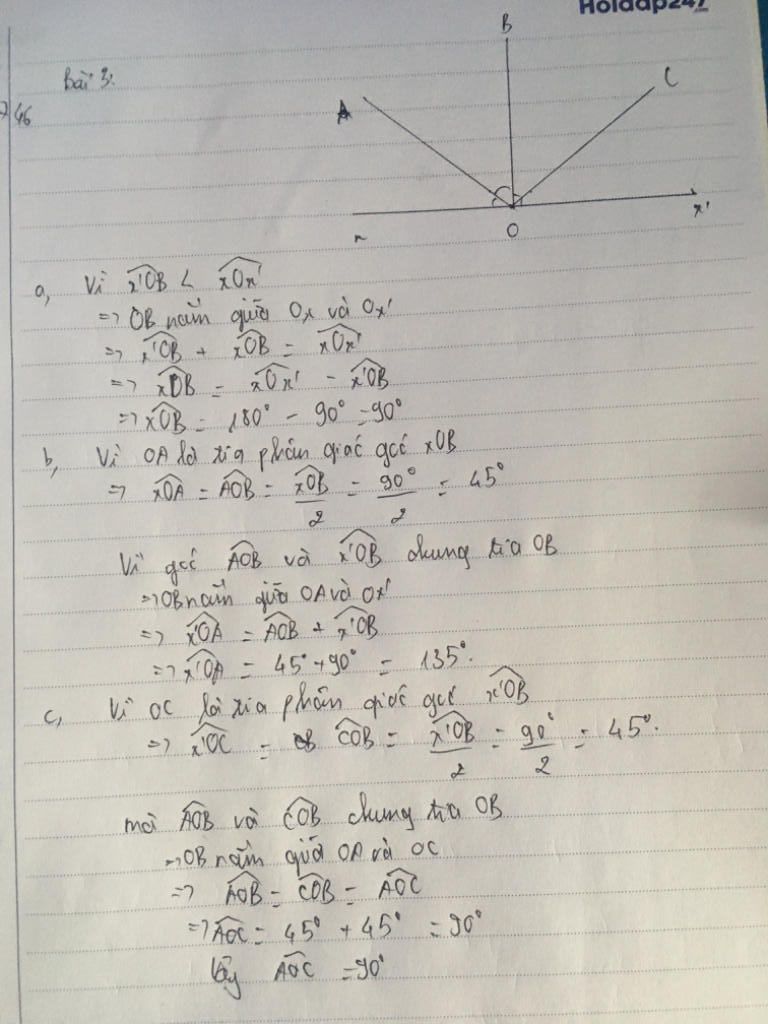 Hoidap247
.com
B
Bài 3:
C
A
46
x'
O
a, Vì x'OB < xOx'
=> OB nằm giữa Ox và Ox'
=> x'OB + xOB = xOx'
=> xOB = xOx' - x'OB
=> xOB = 180° - 90° = 90°
b, Vì OA là tia phân giác góc xOB
=> xOA = AOB = xOB/2 = 90°/2 = 45°
Vì góc AOB và x'OB chung tia OB
=> OB nằm giữa OA và Ox'
=> x'OA = AOB + x'OB
=> x'OA = 45° + 90° = 135°.
c, Vì OC là tia phân giác góc x'OB
=> x'OC = COB = x'OB/2 = 90°/2 = 45°.
mà AOB và COB chung tia OB
=> OB nằm giữa OA và OC
=> AOB = COB = AOC
=> AOC = 45° + 45° = 90°
Vậy AOC = 90°